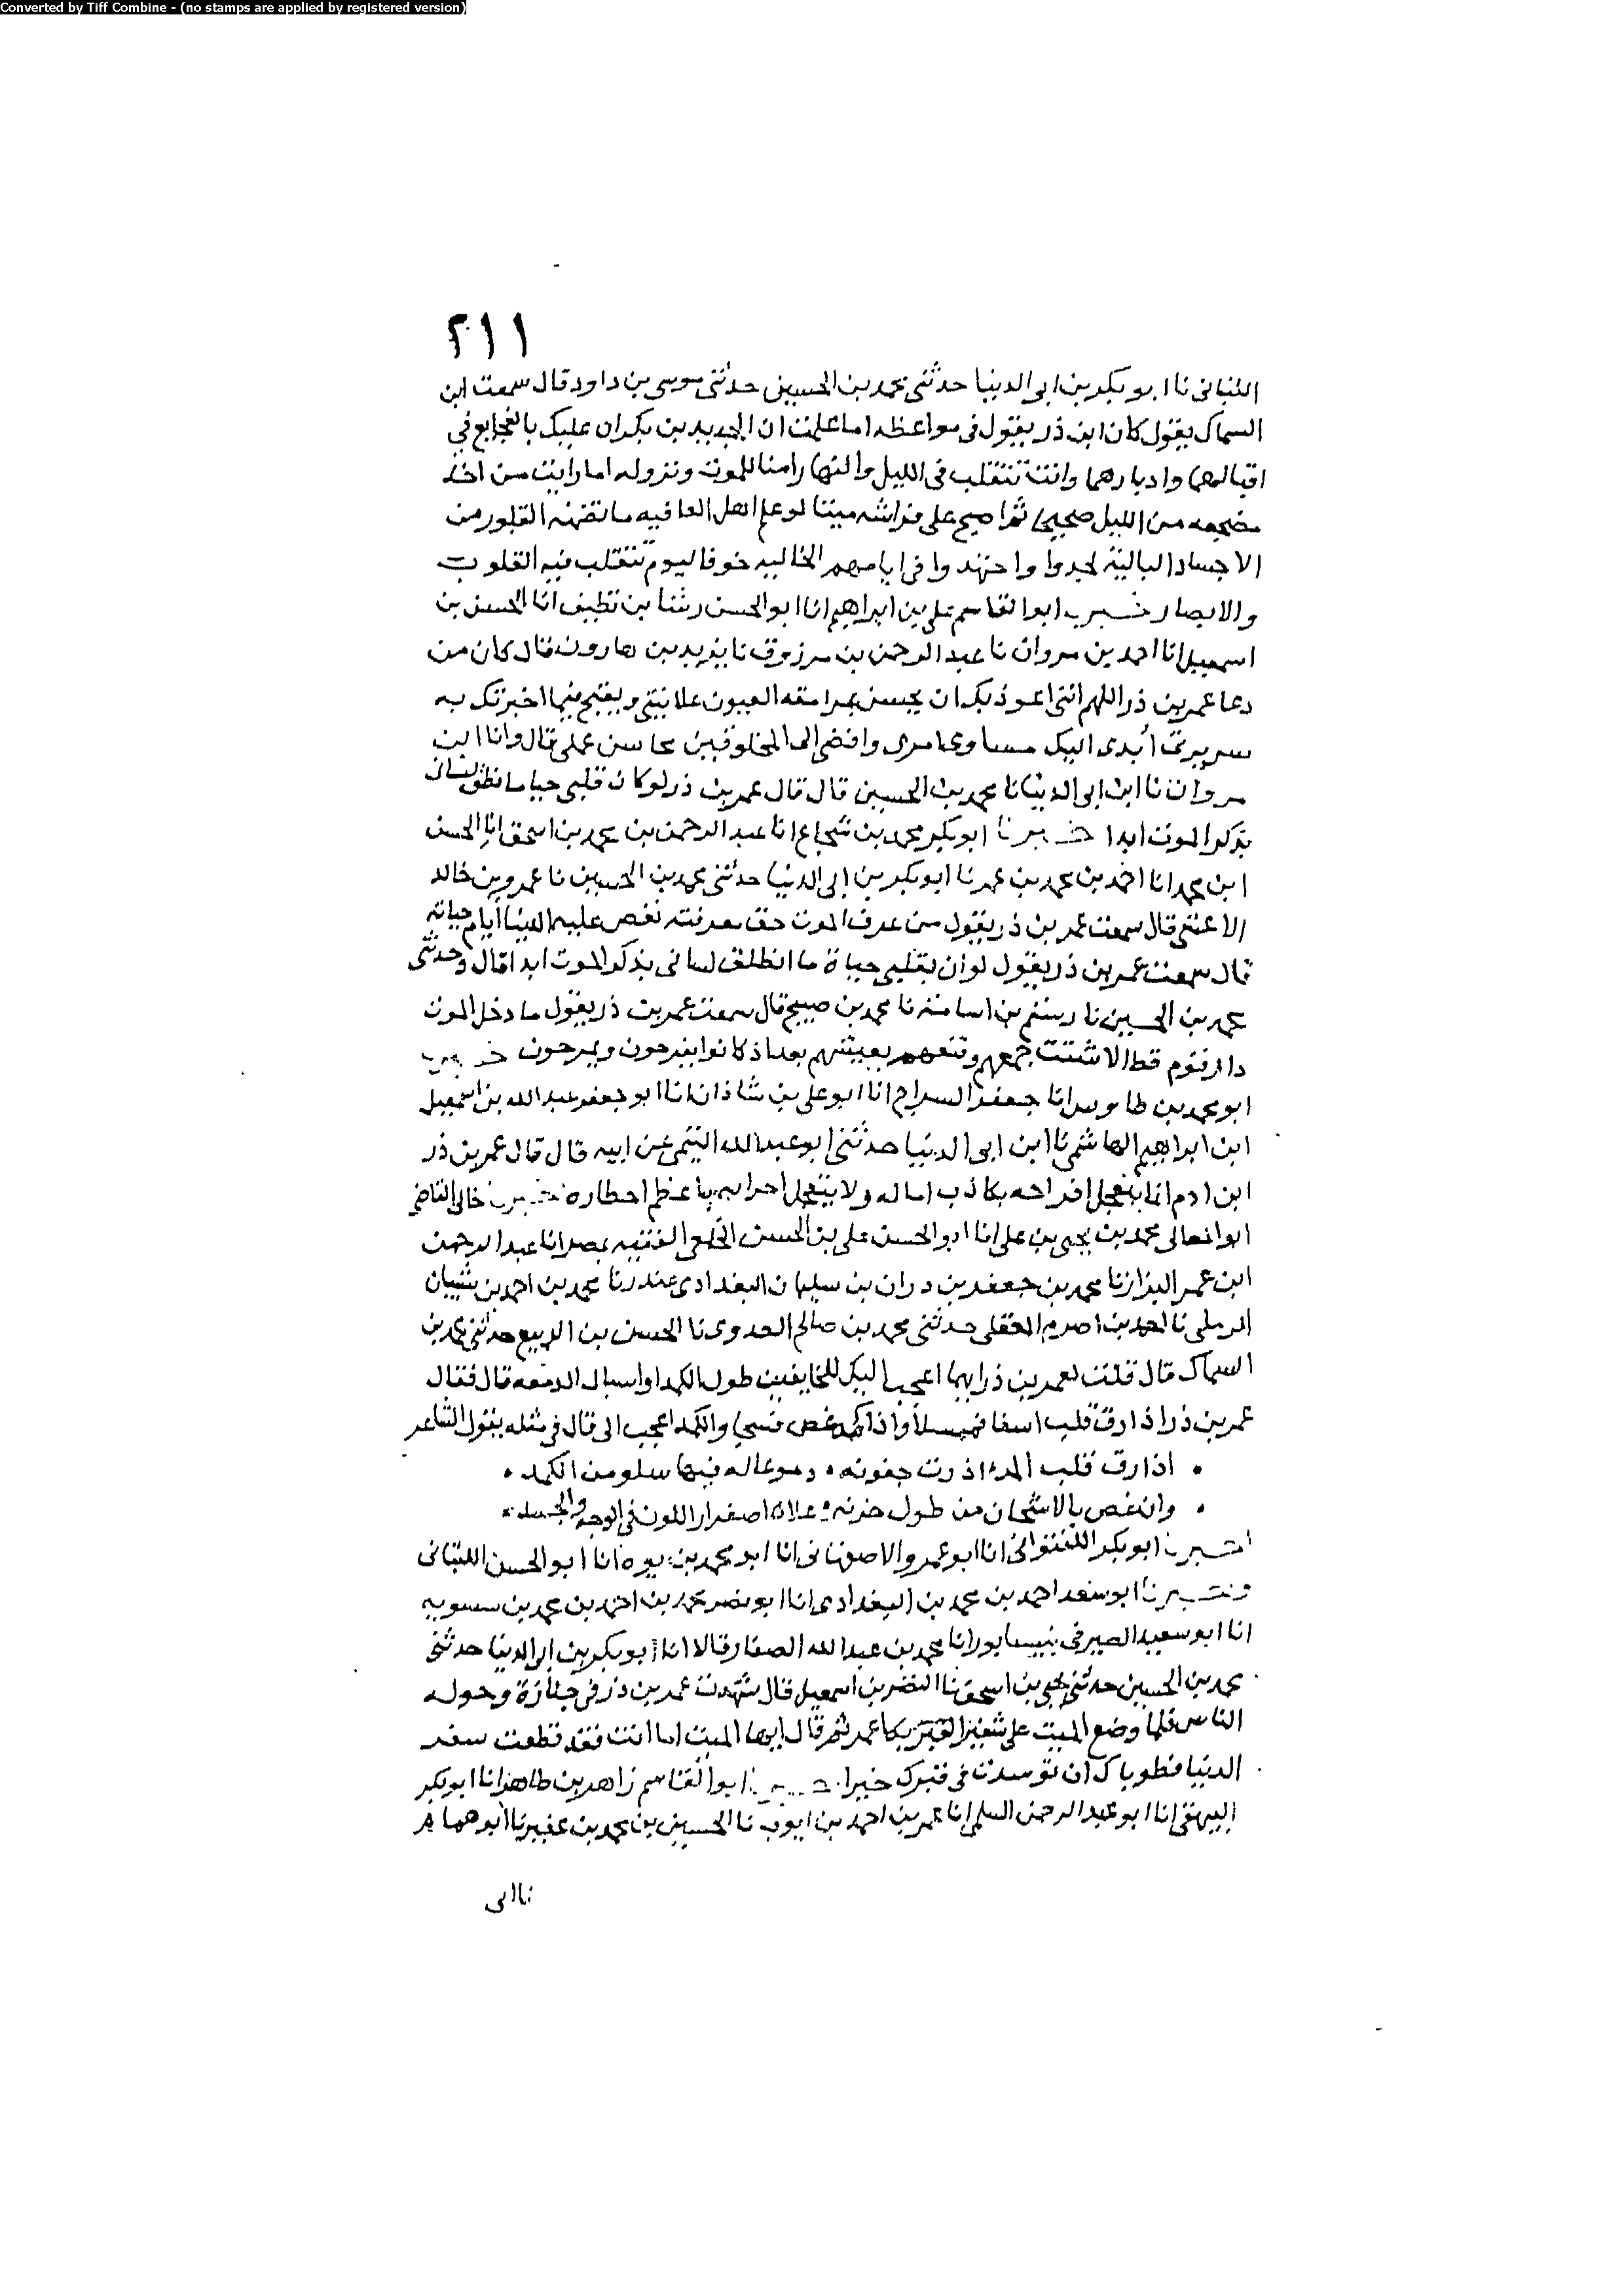 Converted by Tiff Combine - (no stamps are applied by registered version)
٢١١
اللنبانى نا ابو بكر بن ابى الدنيا حدثنى محمد بن الحسين حدثنى موسى بن داود قال سمعت ابن
السماك يقول كان ابن ذر يقول فى مواعظه اما علمت ان الجديدين يكران عليك بالفجايع فى
اقبالهما وادبارهما وانت تتقلب فى الليل والنهار امنا للموت ونزوله اما رايت من اخذ
مضجعه من الليل صحيحا ثم اصبح على فراشه ميتا لو علم اهل العافيه ما تضمنه القبور من
الاجساد البالية لجدوا واجتهدوا فى ايامهم الخاليه خوفا ليوم تتقلب فيه القلوب
والابصار خبرنا ابو القاسم على بن ابراهيم انا ابو الحسن رشا بن نظيف انا الحسن بن
اسمعيل انا احمد بن مروان نا عبد الرحمن بن مرزوق نا يزيد بن هارون قال كان من
دعا عمر بن ذر اللهم انى اعوذ بك ان يحسن بمرامقه العيون علانيتى ويقبح فيما اخبرتك به
سريرتى أبدى اليك مساوى امرى وافضى الى المخلوقين محاسن عملى قال وانا ابن
مروان نا ابن ابى الدنيا نا محمد بن الحسين قال قال عمر بن ذر لو كان قلبى حيا ما نطق لسانى
بذكر الموت ابدا خبرنا ابو بكر محمد بن شجاع انا عبد الرحمن بن محمد بن اسحق انا الحسن
ابن محمد انا احمد بن محمد بن عمر نا ابو بكر بن ابى الدنيا حدثنى محمد بن الحسين نا عمرو بن خالد
الاعشى قال سمعت عمر بن ذر يقول من عرف الموت حق معرفته نغص عليه الدنيا أيام حياته
قال سمعت عمر بن ذر يقول لو ان بقلبى حياة ما انطلق لسانى بذكر الموت ابدا قال وحدثنى
محمد بن الحسين نا رستم بن اسامة نا محمد بن صبيح قال سمعت عمر بن ذر يقول ما دخل الموت
دار قوم قط الا شتت جمعهم وقنعهم بعيشهم بعد اذ كانوا يفرحون ويمرحون خبرنا
ابو محمد بن طاوس انا جعفر السراج انا ابو على بن شاذان انا ابو جعفر عبد الله بن اسمعيل
ابن ابراهيم الهاشمى نا ابن ابى الدنيا حدثنى ابو عبد الله التيمى عن ابيه قال قال عمر بن ذر
ابن ادم انما يتعجل افراحه بكاذب اماله ولا يتعجل احزانه باعظم اخطاره خبرنا خالى القاضى
ابو المعالى محمد بن يحيى بن على انا ابو الحسن على بن الحسن الخلعى الفقيه بمصر انا عبد الرحمن
ابن عمر البزاز نا محمد بن جعفر بن دران بن سليمان البغدادى غندر نا محمد بن احمد بن شيبان
الرملى نا احمد بن اصرم العقلى حدثنى محمد بن صالح العدوى نا الحسن بن الربيع حدثنى محمد بن
السماك قال قلت لعمر بن ذر ايهما اعجب اليك للخايفين طول الكمد او اسبال الدمعه قال فقال
عمر بن ذر اذا رق قلب اسفا فهمسلا واذا كمد غص فسجى والكمد اعجب الى قال فى مثله يقول الشاعر
• اذا رق قلب المرء اذرت جفونه • دموعا له فيها سلو من الكمد •
• وان غص بالاشجان من طول حزنه • علاه اصفرار اللون فى الوجه والجسد •
اخبرنا ابو بكر اللفتوانى انا ابو عمرو الاصبهانى انا ابو محمد بن يوه انا ابو الحسن اللنبانى
خبرنا ابو سعد احمد بن محمد بن البغدادى انا ابو نصر محمد بن احمد بن محمد بن سسويه
انا ابو سعيد الصيرفى بنيسابور انا محمد بن عبد الله الصفار قالا انا ابو بكر بن ابى الدنيا حدثنى
محمد بن الحسين حدثنى يحيى بن اسحق نا النضر بن اسمعيل قال شهدت عمر بن ذر فى جنازة وحوله
الناس فلما وضع الميت على شفير القبر بكا عمر ثم قال ايها الميت اما انت فقد قطعت سفر
الدنيا فطوباك ان توسدت فى قبرك خيرا خبرنا ابو القاسم زاهر بن طاهر انا ابو بكر
البيهقى انا ابو عبد الرحمن السلمى انا عمر بن احمد بن ايوب نا الحسين بن محمد بن عفير نا ابو همام
نا ابى